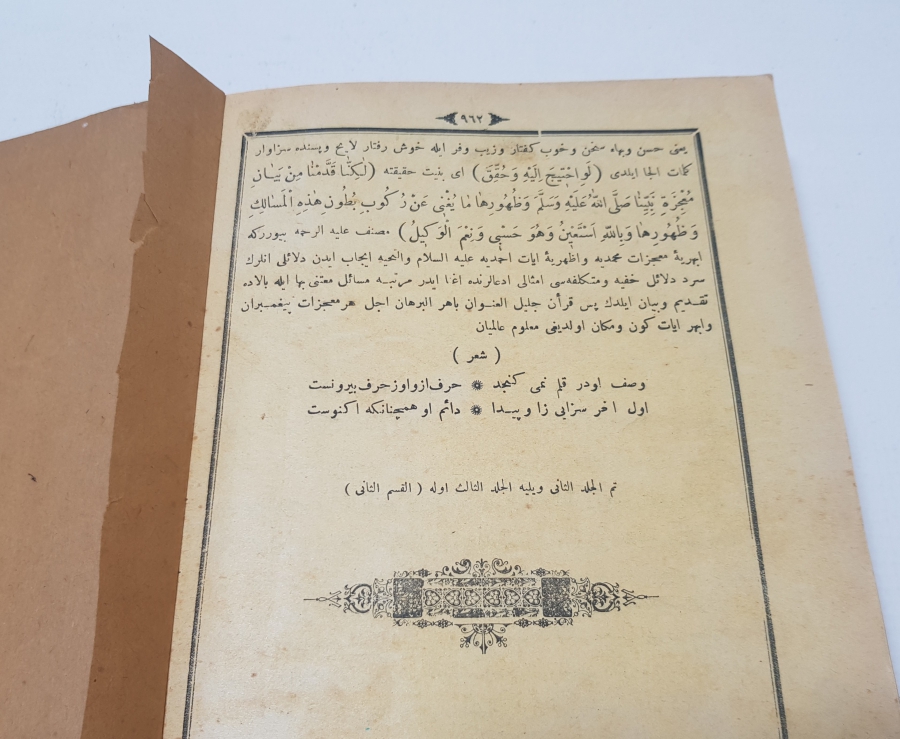 ٩٦٢
یعنی حسن وبهاء سخن وخوب کفتار وزیب وفر ایله خوش رفتار لایح وپسنده سزاوار
کلمات الجا ایلدی (لَوِ احْتِيجَ اِلَيْهِ وَحُقِّقَ) ای بنیت حقیقته (لٰكِنَّا قَدَّمْنَا مِنْ بَيَانِ
مُعْجِزَةِ نَبِيِّنَا صَلَّى اللّٰهُ عَلَيْهِ وَسَلَّمَ وَظُهُورِهَا مَا يُغْنِى عَنْ رُكُوبِ بُطُونِ هٰذِهِ الْمَسَالِكِ
وَظُهُورِهَا وَبِاللّٰهِ اَسْتَعِينُ وَهُوَ حَسْبِى وَنِعْمَ الْوَكِيلُ) مصنف علیه الرحمه بیوررکه
ابهریهٔ معجزات محمدیه واظهریهٔ ایات احمدیه علیه السلام والتحیه ایجاب ایدن دلائلی انلرك
سرد دلائل خفیه ومتکلفه‌سی امثالی ادعالرنده اغنا ایدر مرتبه مسائل معتنی بها ایله بالاده
تقدیم وبیان ایلدك پس قرأن جلیل العنوان باهر البرهان اجل هر معجزات پیغمبران
وابهر ایات کون ومکان اولدیغی معلوم عالمیان
( شعر )
وصف اودر قلم نمی کنجد ۞ حرف ازو او زحرف بیرونست
اول اخر سزایی زا وپیدا ۞ دائم او همچنانکه اکنوست
تم الجلد الثانی ویلیه الجلد الثالث اوله ( القسم الثانی )